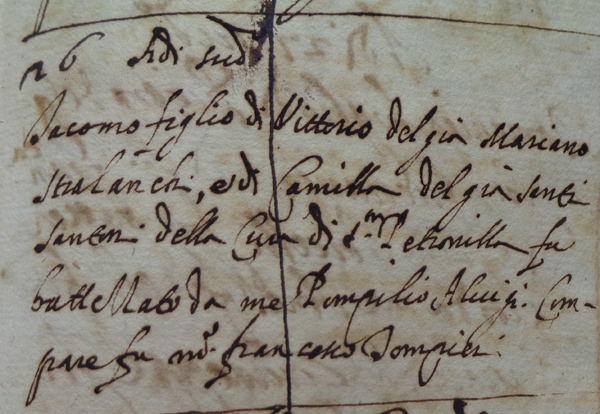 n 26 Adi sud.
Iacomo figlio di Vittorio del già Mariano
Stralanchi, e di Camilla del già Santi
Santoni della Cura di S.ma Petronilla fu
battezzato da me Pompilio Aluigi. Com-
pare fu m.o francesco Pompieri